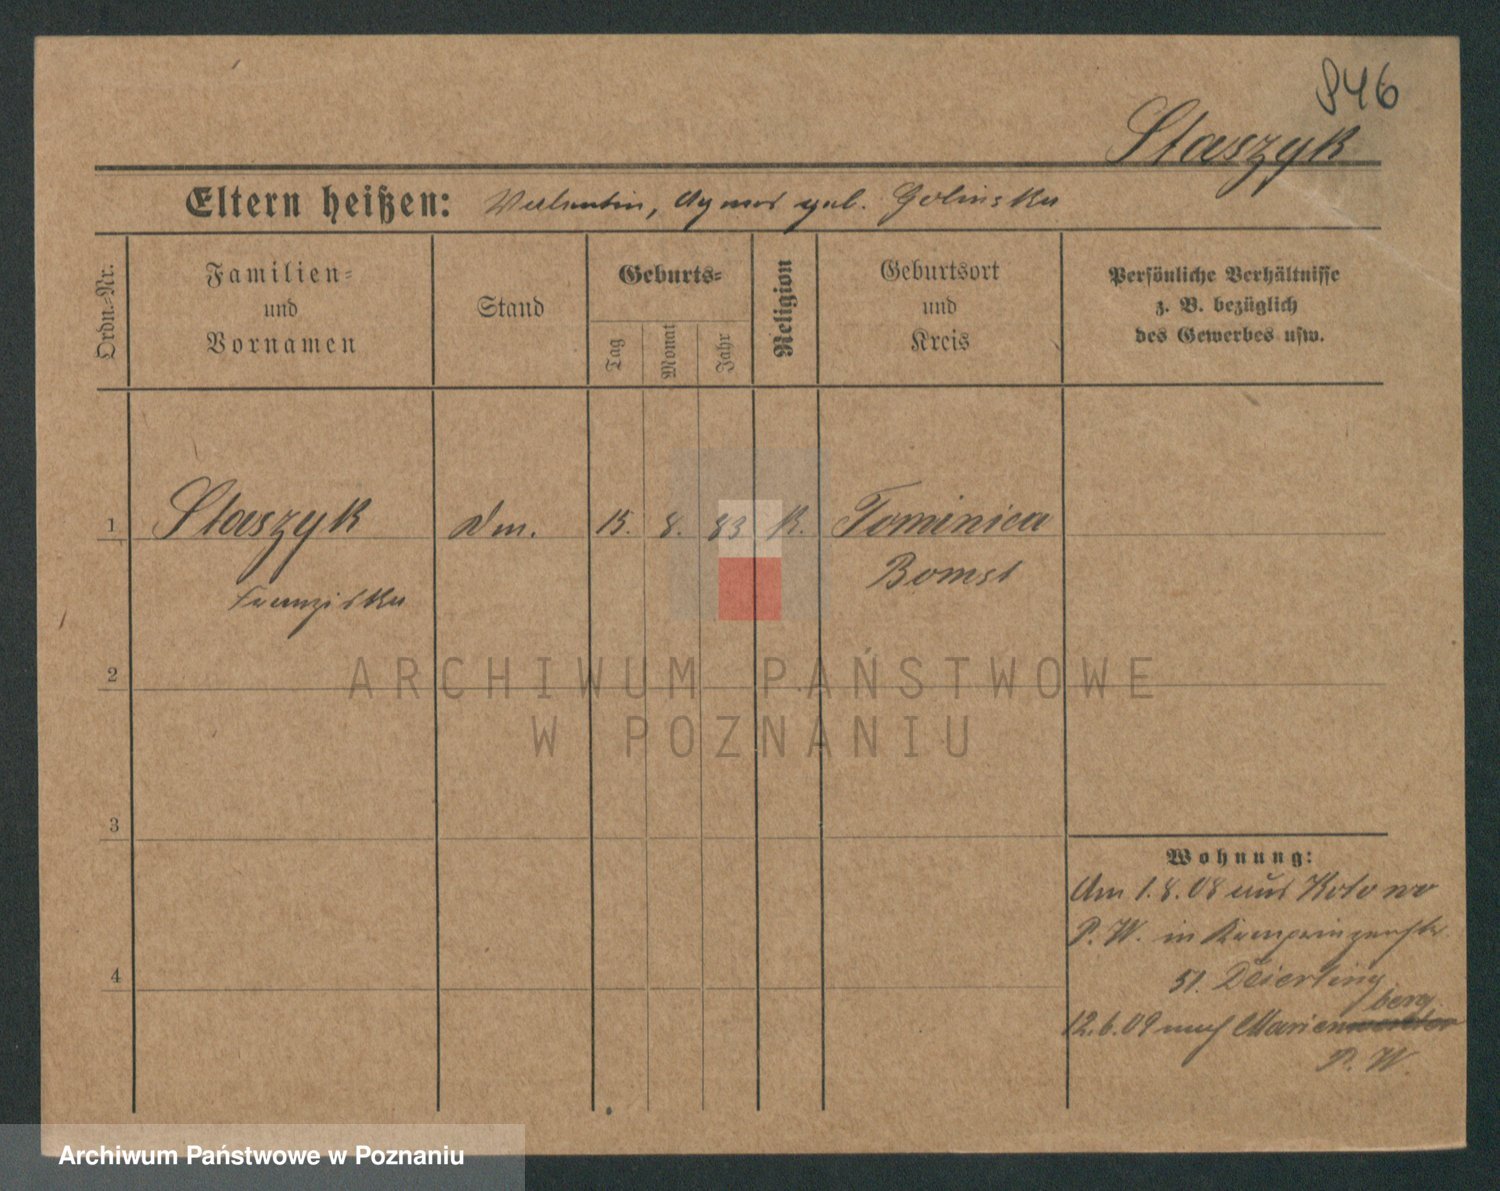 946
Staszyk
Eltern heißen: Valentin, Agnes geb. Golinska
Ordn.-Nr.
Familien-
und
Vornamen
Stand
Geburts-
Tag
Monat
Jahr
Religion
Geburtsort
und
Kreis
Persönliche Verhältnisse
z. B. bezüglich
des Gewerbes usw.
1 Staszyk Dm. 15. 8. 83 K. Tominica
Franziska Bomst
2
3
4
Wohnung:
Am 1.8.08 aus Kotowo
P. W. in
51.
12.6.09 nach Marienwerder berg
P. W.
ARCHIWUM PAŃSTWOWE
W POZNANIU
Archiwum Państwowe w Poznaniu